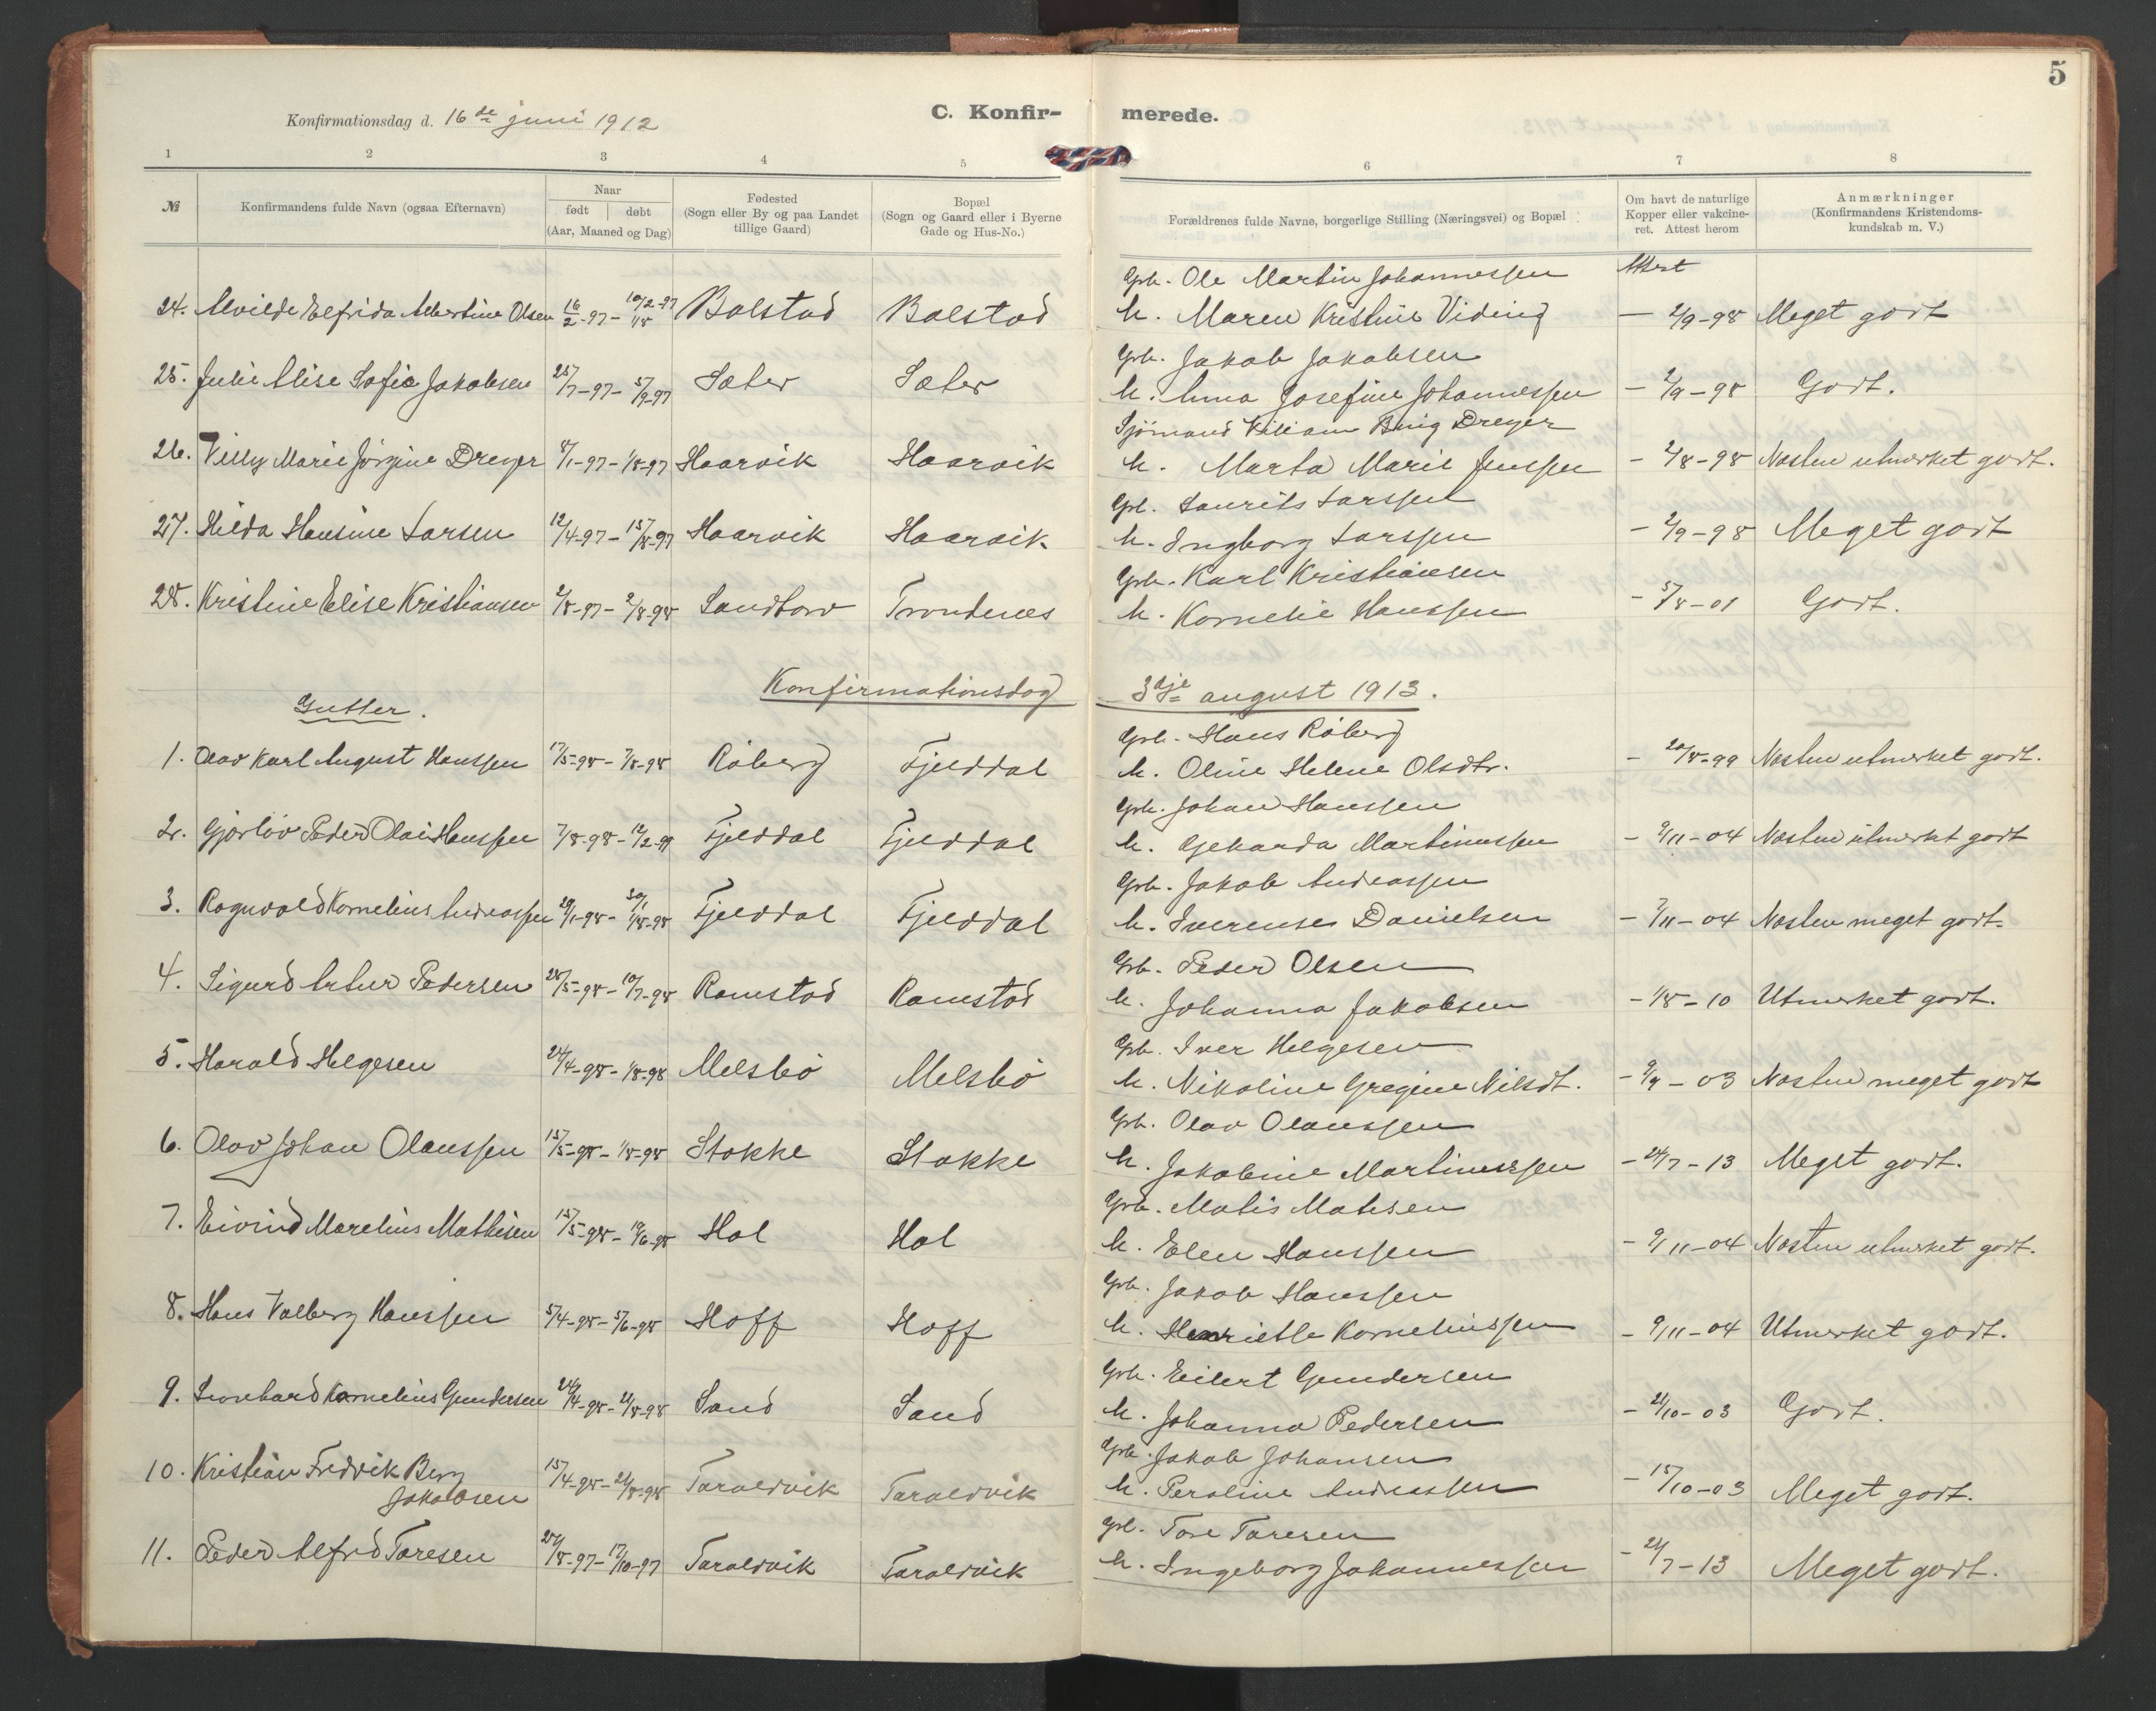 5
Konfirmationsdag d. 16de juni 1912
C. Konfir- merede.
1 2 3 4 5 6 7 8
№ Konfirmandens fulde Navn (ogsaa Efternavn)
Naar født døbt (Aar, Maaned og Dag)
Fødested (Sogn eller By og paa Landet tillige Gaard)
Bopæl (Sogn og Gaard eller i Byerne Gade og Hus-No.)
Forældrenes fulde Navne, borgerlige Stilling (Næringsvei) og Bopæl
Om havt de naturlige Kopper eller vakcineret. Attest herom
Anmærkninger (Konfirmandens Kristendomskundskab m. V.)
Gbr. Ole Martin Johannessen Attest
24. Alvilde Elfrida Albertine Olsen 16/2-97 - Bolstad Bolstad h. Maren Kristine Viding - 2/9-98 Meget godt
Gbr. Jakob Jakobsen
25. Julie Elise Sofie Jakobsen 25/7-97 - 5/9-97 Sæter Sæter h. Anna Josefine Johannessen - 2/9-98 Godt.
Sjömand Villiam Dreyer
26. Villy Marie Jörgine Dreyer 8/1-97 - 1/8-97 Haarvik Haarvik h. Marta Marie Jenssen - 2/8-98 Næsten utmerket godt.
Gbr. Laurits Larssen
27. Hilda Hansine Larsen 12/4-97 - 15/8-97 Haarvik Haarvik h. Ingborg Larssen - 2/9-98 Meget godt
Gbr. Karl Kristiansen
28. Kristine Elise Kristiansen 2/8-97 - 2/8-98 Sandtorv Trondenes h. Kornelie Hanssen - 5/8-01 Godt.
Konfirmationsdag 3dje august 1913.
Gutter.
Gbr. Hans Röberg
1. Olav Karl August Hanssen 17/5-98 - 7/8-98 Röberg Fjelddal h. Oline Helene Olsdtr. - 20/8-99 Næsten utmerket godt.
Gbr. Johan Hanssen
2. Gjerlöv Peder Olai Hanssen 7/8-98 - 12/2-99 Fjelddal Fjelddal h. Gekarda Martinussen - 9/11-04 Næsten utmerket godt
Gbr. Jakob Andreassen
3. Ragnvald Kornelius Andreassen 29/1-98 - 30/1 1/8-98 Fjelddal Fjelddal h. Iverense Danielsen - 7/11-04 Næsten meget godt.
Gbr. Peder Olsen
4. Sigurd Artur Pedersen 28/5-98 - 10/7-98 Ramstad Ramstad h. Johanna Jakobsen - 1/8-10 Utmerket godt.
Gbr. Iver Helgesen
5. Harald Helgesen 24/4-98 - 1/8-98 Melsbö Melsbö h. Nikoline Gregine Nilsdt. - 9/9-03 Næsten meget godt
Gbr. Olav Olaussen
6. Olav Johan Olaussen 15/5-98 - 1/8-98 Stokke Stokke h. Jakobine Martinussen - 24/7-13 Meget godt.
Gbr. Matis Matisen
7. Eivind Marelius Mathisen 15/5-98 - 19/6-98 Hol Hol h. Elen Hanssen - 9/11-04 Næsten utmerket godt.
Gbr. Jakob Hanssen
8. Hans Valberg Hanssen 5/4-98 - 5/6-98 Hoff Hoff h. Henriette Korneliussen - 9/11-04 Utmerket godt.
Gbr. Eilert Gundersen
9. Leonhard Kornelius Gundersen 24/4-98 - 21/8-98 Sand Sand h. Johanna Pedersen - 21/10-03 Godt.
Gbr. Jakob Johansen
10. Kristian Fredrik Berg Jakobsen 15/4-98 - 21/8-98 Taraldvik Taraldvik h. Peroline Andreassen - 15/10-03 Meget godt.
Gbr. Tore Toresen
11. Peder Alfred Toresen 28/8-97 - 17/10-97 Taraldvik Taraldvik h. Ingeborg Johannessen - 24/7-13 Meget godt.